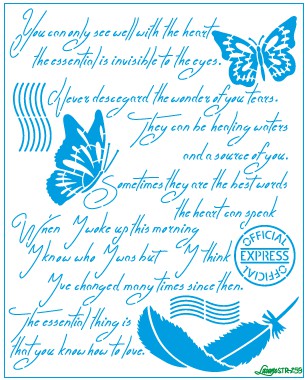 You can only see well with the heart
the essential is invisible to the eyes.
Never descegard the wonder of you tears.
They can be healing waters
and a source of you.
Sometimes they are the best words
the heart can speak
When I woke up this morning
I know who I was but I think
I've changed many times since then.
OFFICIAL
EXPRESS
OFFICIAL
The essential thing is
that you know how to love.
STR-259